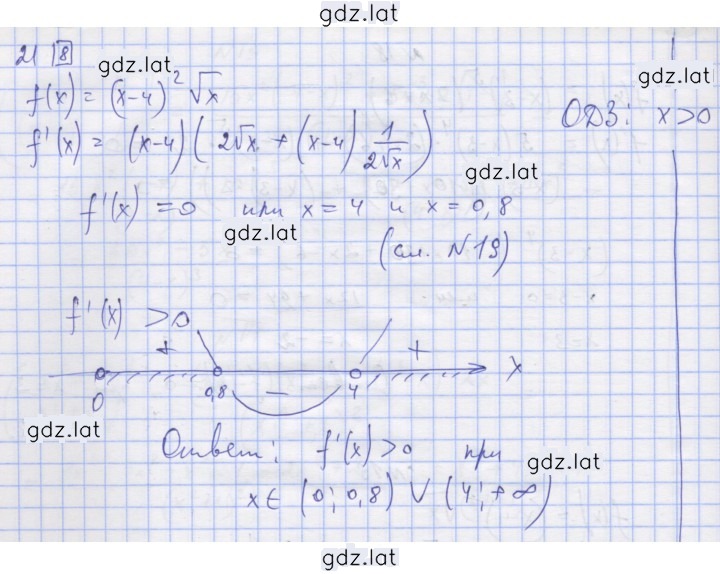 gdz.lat
21 8
gdz.lat
f(x) = (x-4)² √x
gdz.lat
ОДЗ: x>0
f'(x) = (x-4)(2√x + (x-4) 1/(2√x))
gdz.lat
f'(x) = 0 при x = 4 и x = 0,8
gdz.lat
(см. N19)
f'(x) > 0
+ +
0 0,8 − 4 x
gdz.lat
Ответ: f'(x) > 0 при
gdz.lat
x ∈ (0; 0,8) ∪ (4; +∞)
gdz.lat